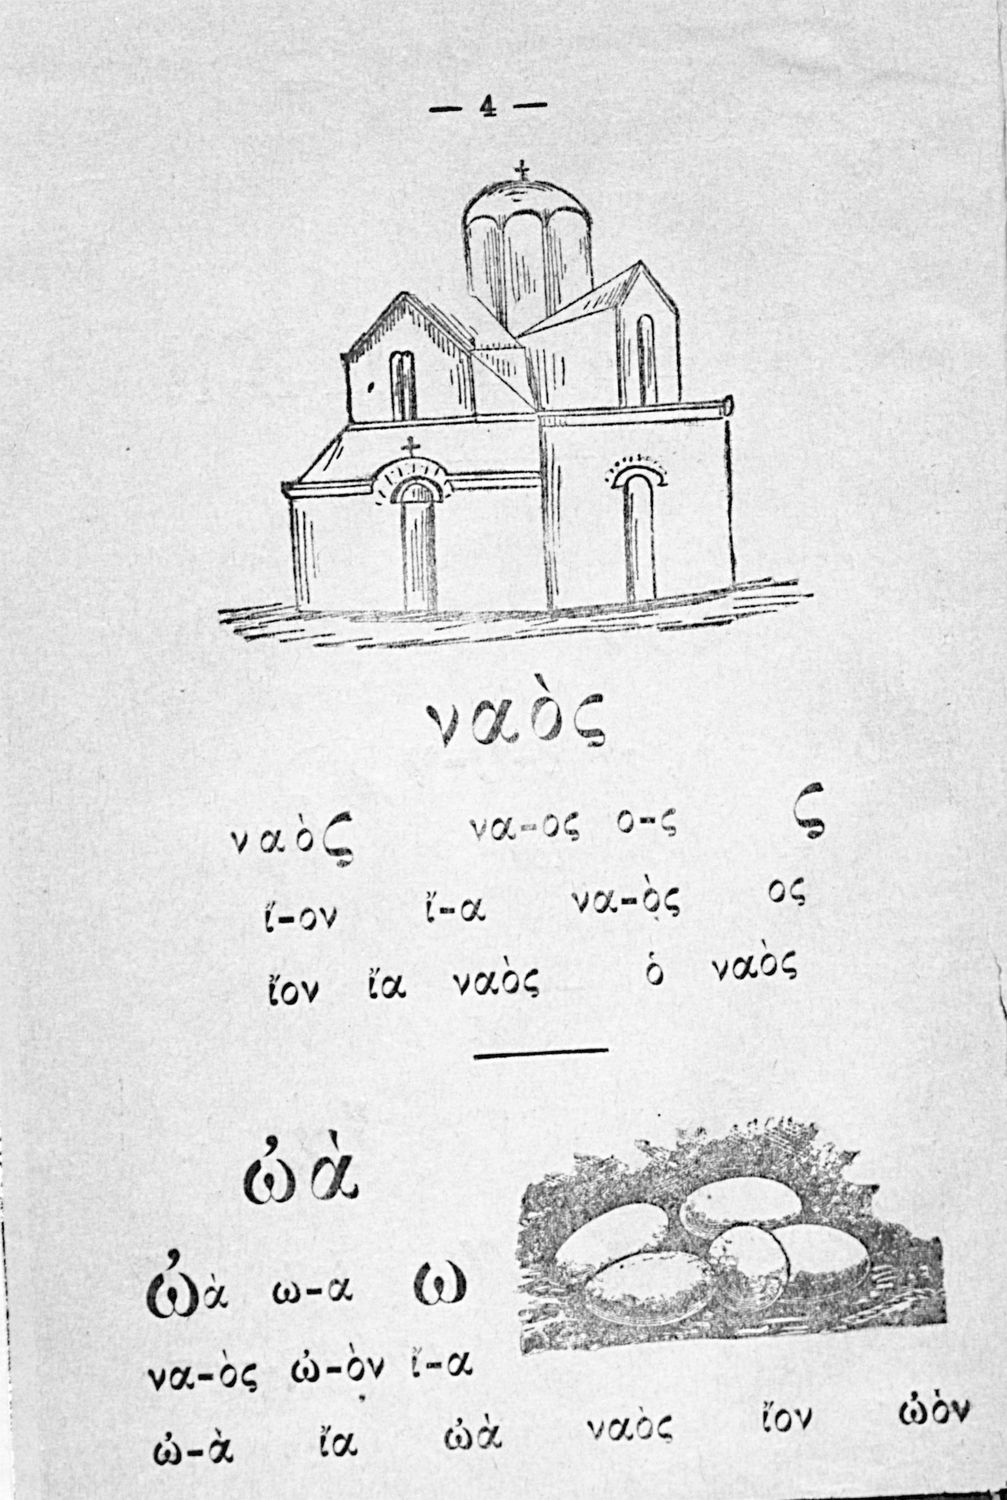 — 4 —
ναὸς
ναὸς να-ος ο-ς ς
ἴ-ον ἴ-α να-ὸς ος
ἴον ἴα ναὸς ὁ ναὸς
ὠὰ
ὠὰ ω-α ω
να-ὸς ὠ-ὸν ἴ-α
ὠ-ὰ ἴα ὠὰ ναὸς ἴον ὠὸν